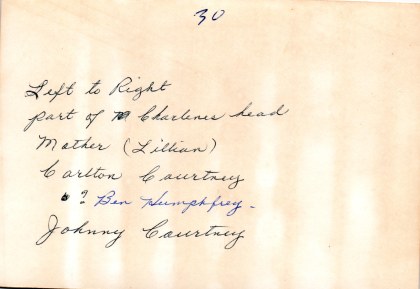 30
Left to Right
part of Charlines head
Mother (Lillian)
Carlton Courtney
? Ben Humphfrey -
Johnny Courtney